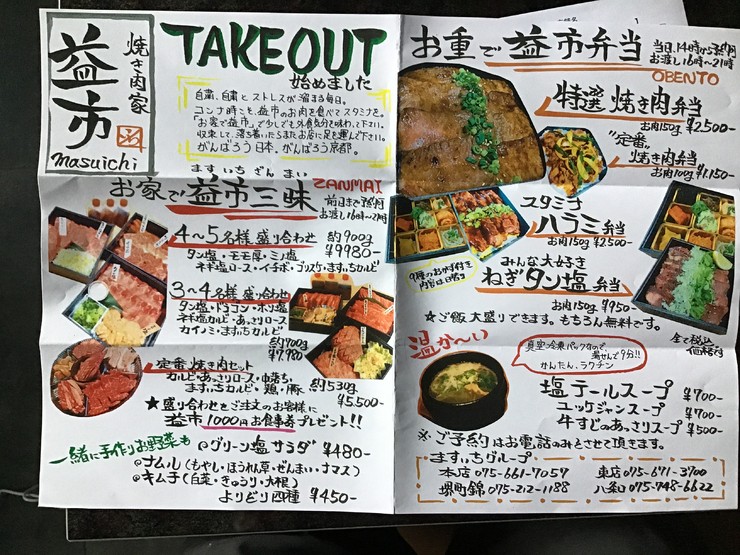 焼き肉家
益市
masuichi
TAKEOUT
始めました
自粛、自粛とストレスが溜まる毎日。
コンナ時こそ、益市のお肉を食べてスタミナを。
「お家で益市」で少しでも外食気分を味わって下さい。
収束して、落ち着いたらまたお店に足を運んで下さい。
がんばろう日本、がんばろう京都。
ますいちざんまい
お家で益市三昧
ZANMAI
前日まで予約
お渡し16時〜21時
4〜5名様 盛り合わせ 約900g
¥9980-
タン塩・モモ厚・ミノ塩
ネギ塩ロース・イチボ・ゴリスケ・ますいちカルビ
3〜4名様 盛り合わせ
タン塩・ドラゴン・ホソ塩
ネギ塩カルビ・あっさりロース
カイノミ・ますいちカルビ
約700g
¥7.980
定番 焼き肉セット
カルビ・あっさりロース・中落ち・
ますいちカルビ・鶏・豚 約530g
¥5,500-
★盛り合わせをご注文のお客様に
益市1000円お食事券プレゼント!!
一緒に手作りお野菜も
@グリーン塩サラダ ¥480-
@ナムル(もやし・ほうれん草・ぜんまい・ナマス)
@キムチ(白菜・きゅうり・大根)
よりどり四種 ¥450-
お重で益市弁当
当日14時から予約
お渡し16時〜21時
OBENTO
特選 焼き肉弁当
お肉150g ¥2500-
"定番"
焼き肉弁当
お肉100g ¥1.150-
スタミナ
ハラミ弁当
お肉150g ¥2500-
9種のおかず付き
内容は日替り
みんな大好き
ねぎタン塩弁当
お肉150g ¥950-
☆ご飯大盛りできます。もちろん無料です。
全て税込
価格です
温か〜い
真空冷凍パックなので、
湯せんで9分!!
かんたん、ラクチン
塩テールスープ ¥700-
ユッケジャンスープ ¥700-
牛すじのあっさりスープ ¥500-
※ご予約はお電話のみとさせて頂きます。
ますいちグループ
本店 075-661-7057 東店 075-671-3700
堺町錦 075-212-1188 八条口 075-748-6622